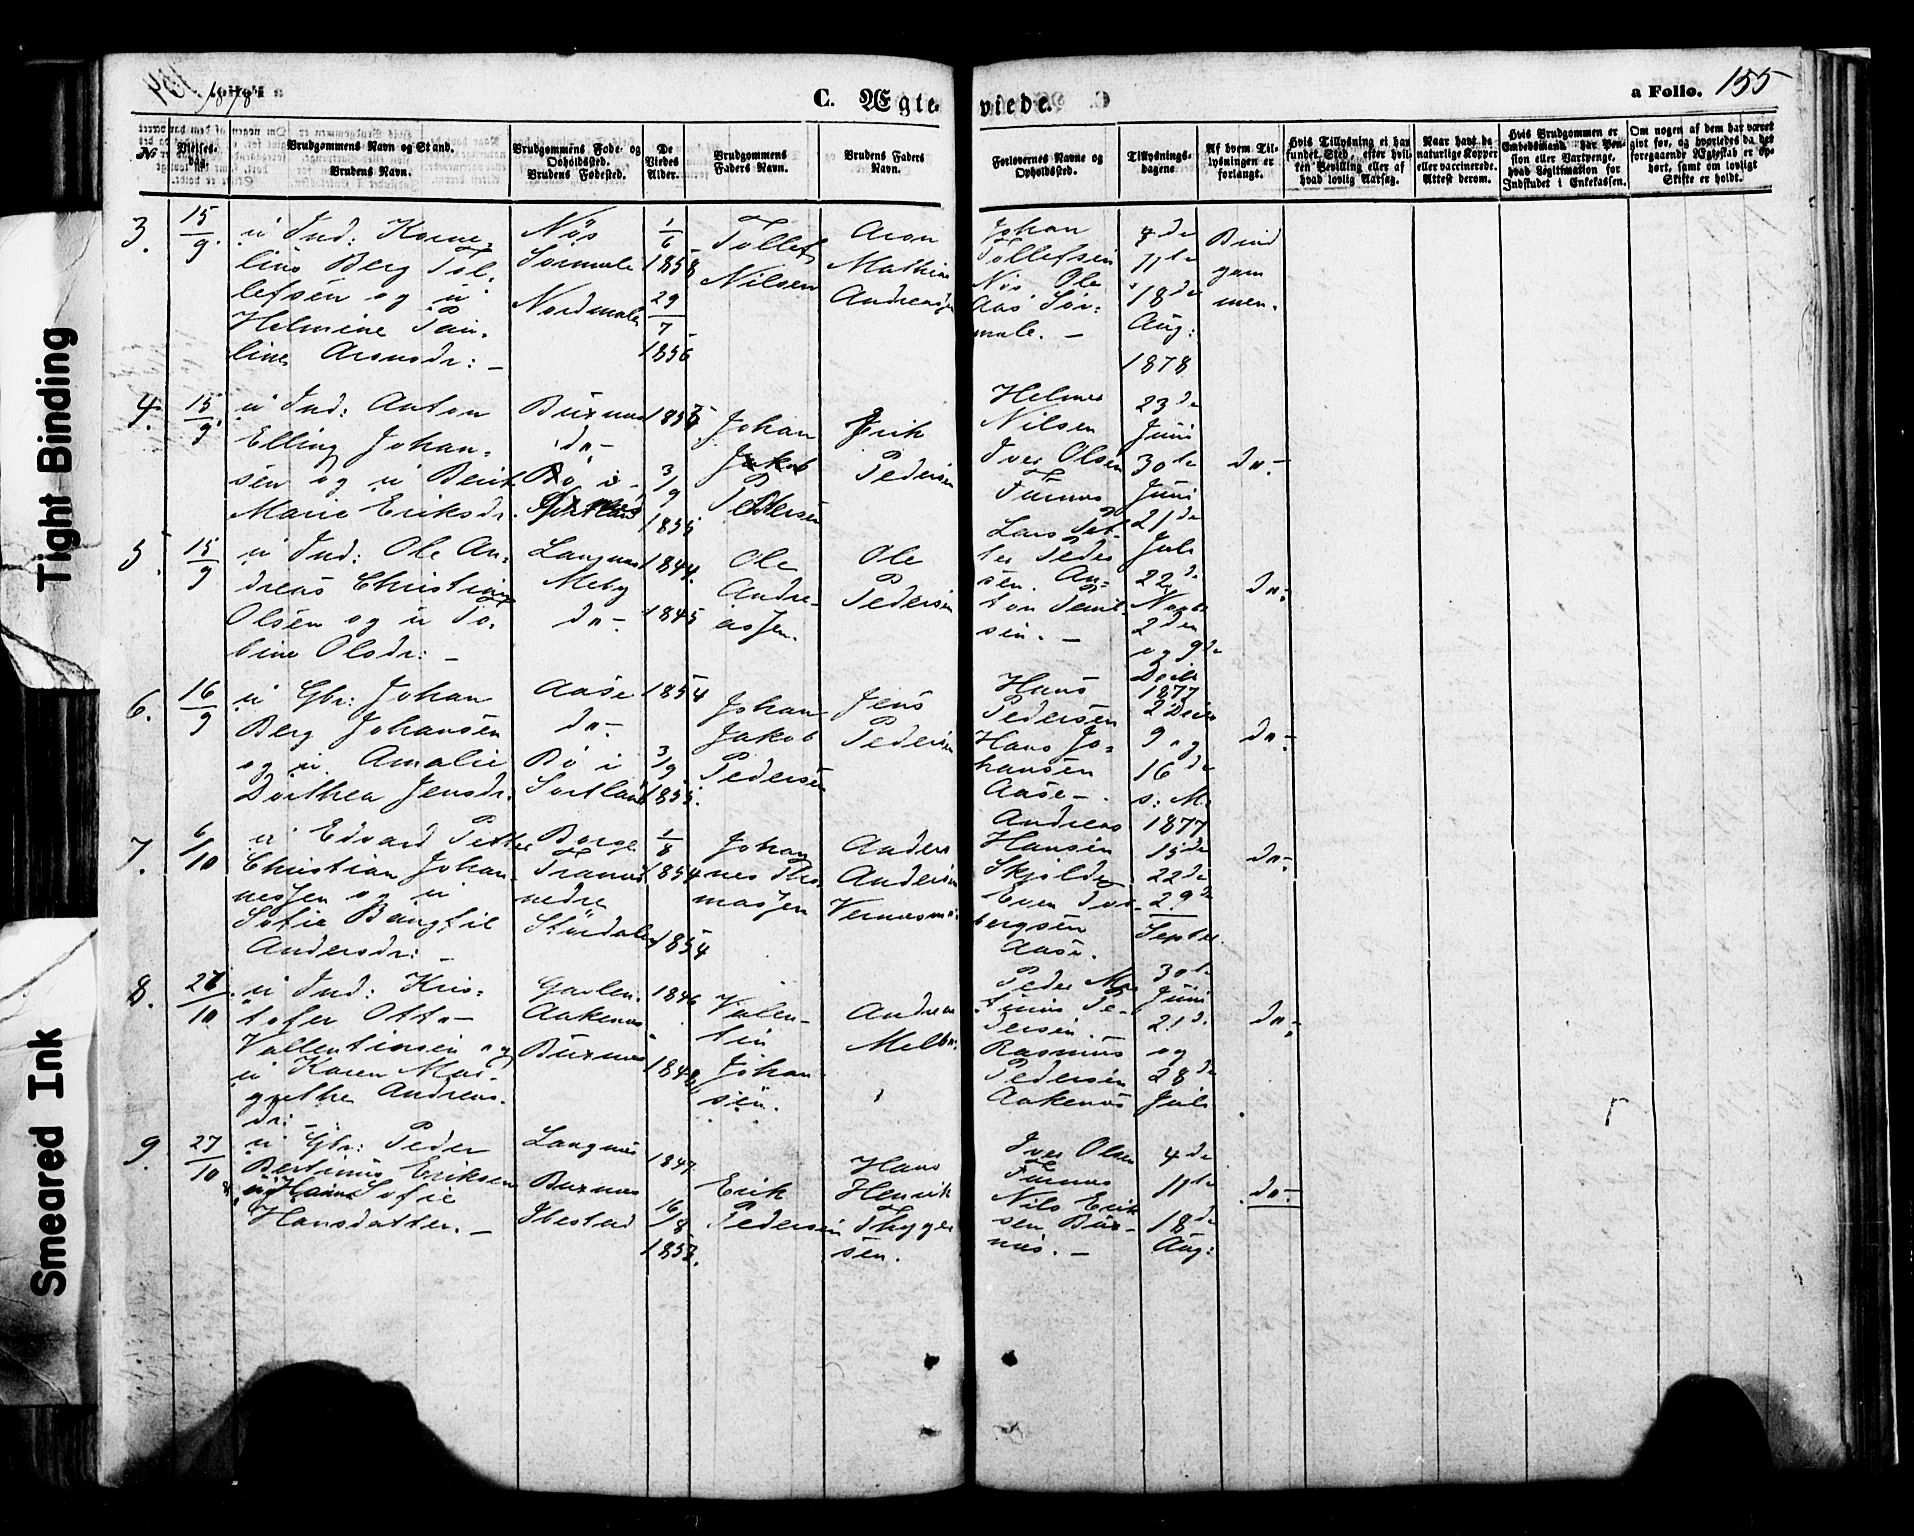 Tight Binding
Smeared Ink
1878
C. Ægteviede.
a Folio. 155
№
Vielses-dag.
Brudgommens Navn og Stand.
Brudens Navn.
Brudgommens Føde- og
Opholdssted.
Brudens Fødested.
De
Viedes
Alder.
Brudgommens
Faders Navn.
Brudens Faders
Navn.
Forlovernes Navne og
Opholdssted.
Tillysnings-
dagene.
Af hvem Til-
lysningen er
forlangt.
Hvis Tillysning ei har
fundet Sted, efter hvil-
ken Bevilling eller af
hvad lovlig Aarsag.
Naar havt de
naturlige Kopper
eller vaccinerede.
Attest derom.
Hvis Brudgommen er
Embedsmand, har Pen-
sion eller Vartpenge,
hvad Legitimation for
Indskudet i Enkekassen.
Om nogen af dem har været
gift før, og hvorledes da det
foregaaende Ægteskab er op-
hørt, samt om lovligt
Skifte er holdt.
3.
15/9.
u Ind: Korne-
lius Berg Tol-
lefsen og u
Helmine Pau-
line Aronsdr: –
Nøs
Sørmele
Nordmele
1/6
1858
29/7
1856
Tollef
Nilsen
Aron
Mathias
Andreassen
Johan
Tollefsen
Nøs Ole
Aas Sør-
mele. –
4de
11te
18de
Aug:
1878
Brud
gom
men.
4.
15/9
u Ind: Anton
Elling Johan-
sen og u Berit
Marie Eriksdr.
Buxnæs
do-
Bø i
Sortland
3/9
1855
Johan
Jakob
Pedersen
Erik
Pedersen
Helmer
Nilsen
Iver Olsen
Turnos
23de
Juni
30te
Juni
21de
Juli
do-
5.
15/9
u Ind: Ole An-
dreas Christian
Olsen og u To-
bine Olsdr: –
Langnæs
Meby
do-
1844.
1845
Ole
Andre-
assen.
Ole
Pedersen
Lars Pet-
ter Peder
sen. An-
ton
sen. –
22de
Novbr
2den
og 9de
Decbr
1877
do-
6.
16/9
u Gbr: Johan
Berg Johansen
og u. Amalie
Dorthea Jensdr.
Aase
do-
Bø i
Sortland
1854
3/9
1855.
Johan
Jakob
Pedersen
Jens
Pedersen
Hans
Pedersen
Hans Jo-
hansen
Aase –.
2 Decbr
9 og
16de
s: M.
1877
do-
7.
6/10
u Edvard Petter
Christian Johan-
nessen og u
Sofie Bangfil
Andersdr: –
Borge
Tranæs
nedre
Størdalen
1/8
1854
1854
Johan
nes Tho-
massen
Anders
Andersen
Vernæsm:
Andreas
Hansen
Skjolde
Even Tor-
bergsen
Aase.
15de
22de
29de
Septbr.
do-
8.
27/10
u Ind: Kris-
tofer Otto
Vallentinsen og
u Karen Mar-
grethe Andreas-
dr: –
Aakenæs
Buxnæs
1846
1848
Valen-
tin
Johan
sen.
Andreas
Peder Mar
tinus Pe-
dersen. –
Rasmus
Pedersen
Aakenæs
30te
Juni
21de
og
28de
Juli
do-
9.
27/10
u Gbr: Peder
Bertinus Eriksen
og Hanna Sofie
Hansdatter. –
Langnæs
Buxnæs
Ibestad
1847.
16/8
1853.
Erik
Pedersen
Hans
Henrik
Thyge
sen.
Iver Olsen
Turnos
Nils Erik
sen Bux-
næs. –
4de
11te
18de
Aug:
do-